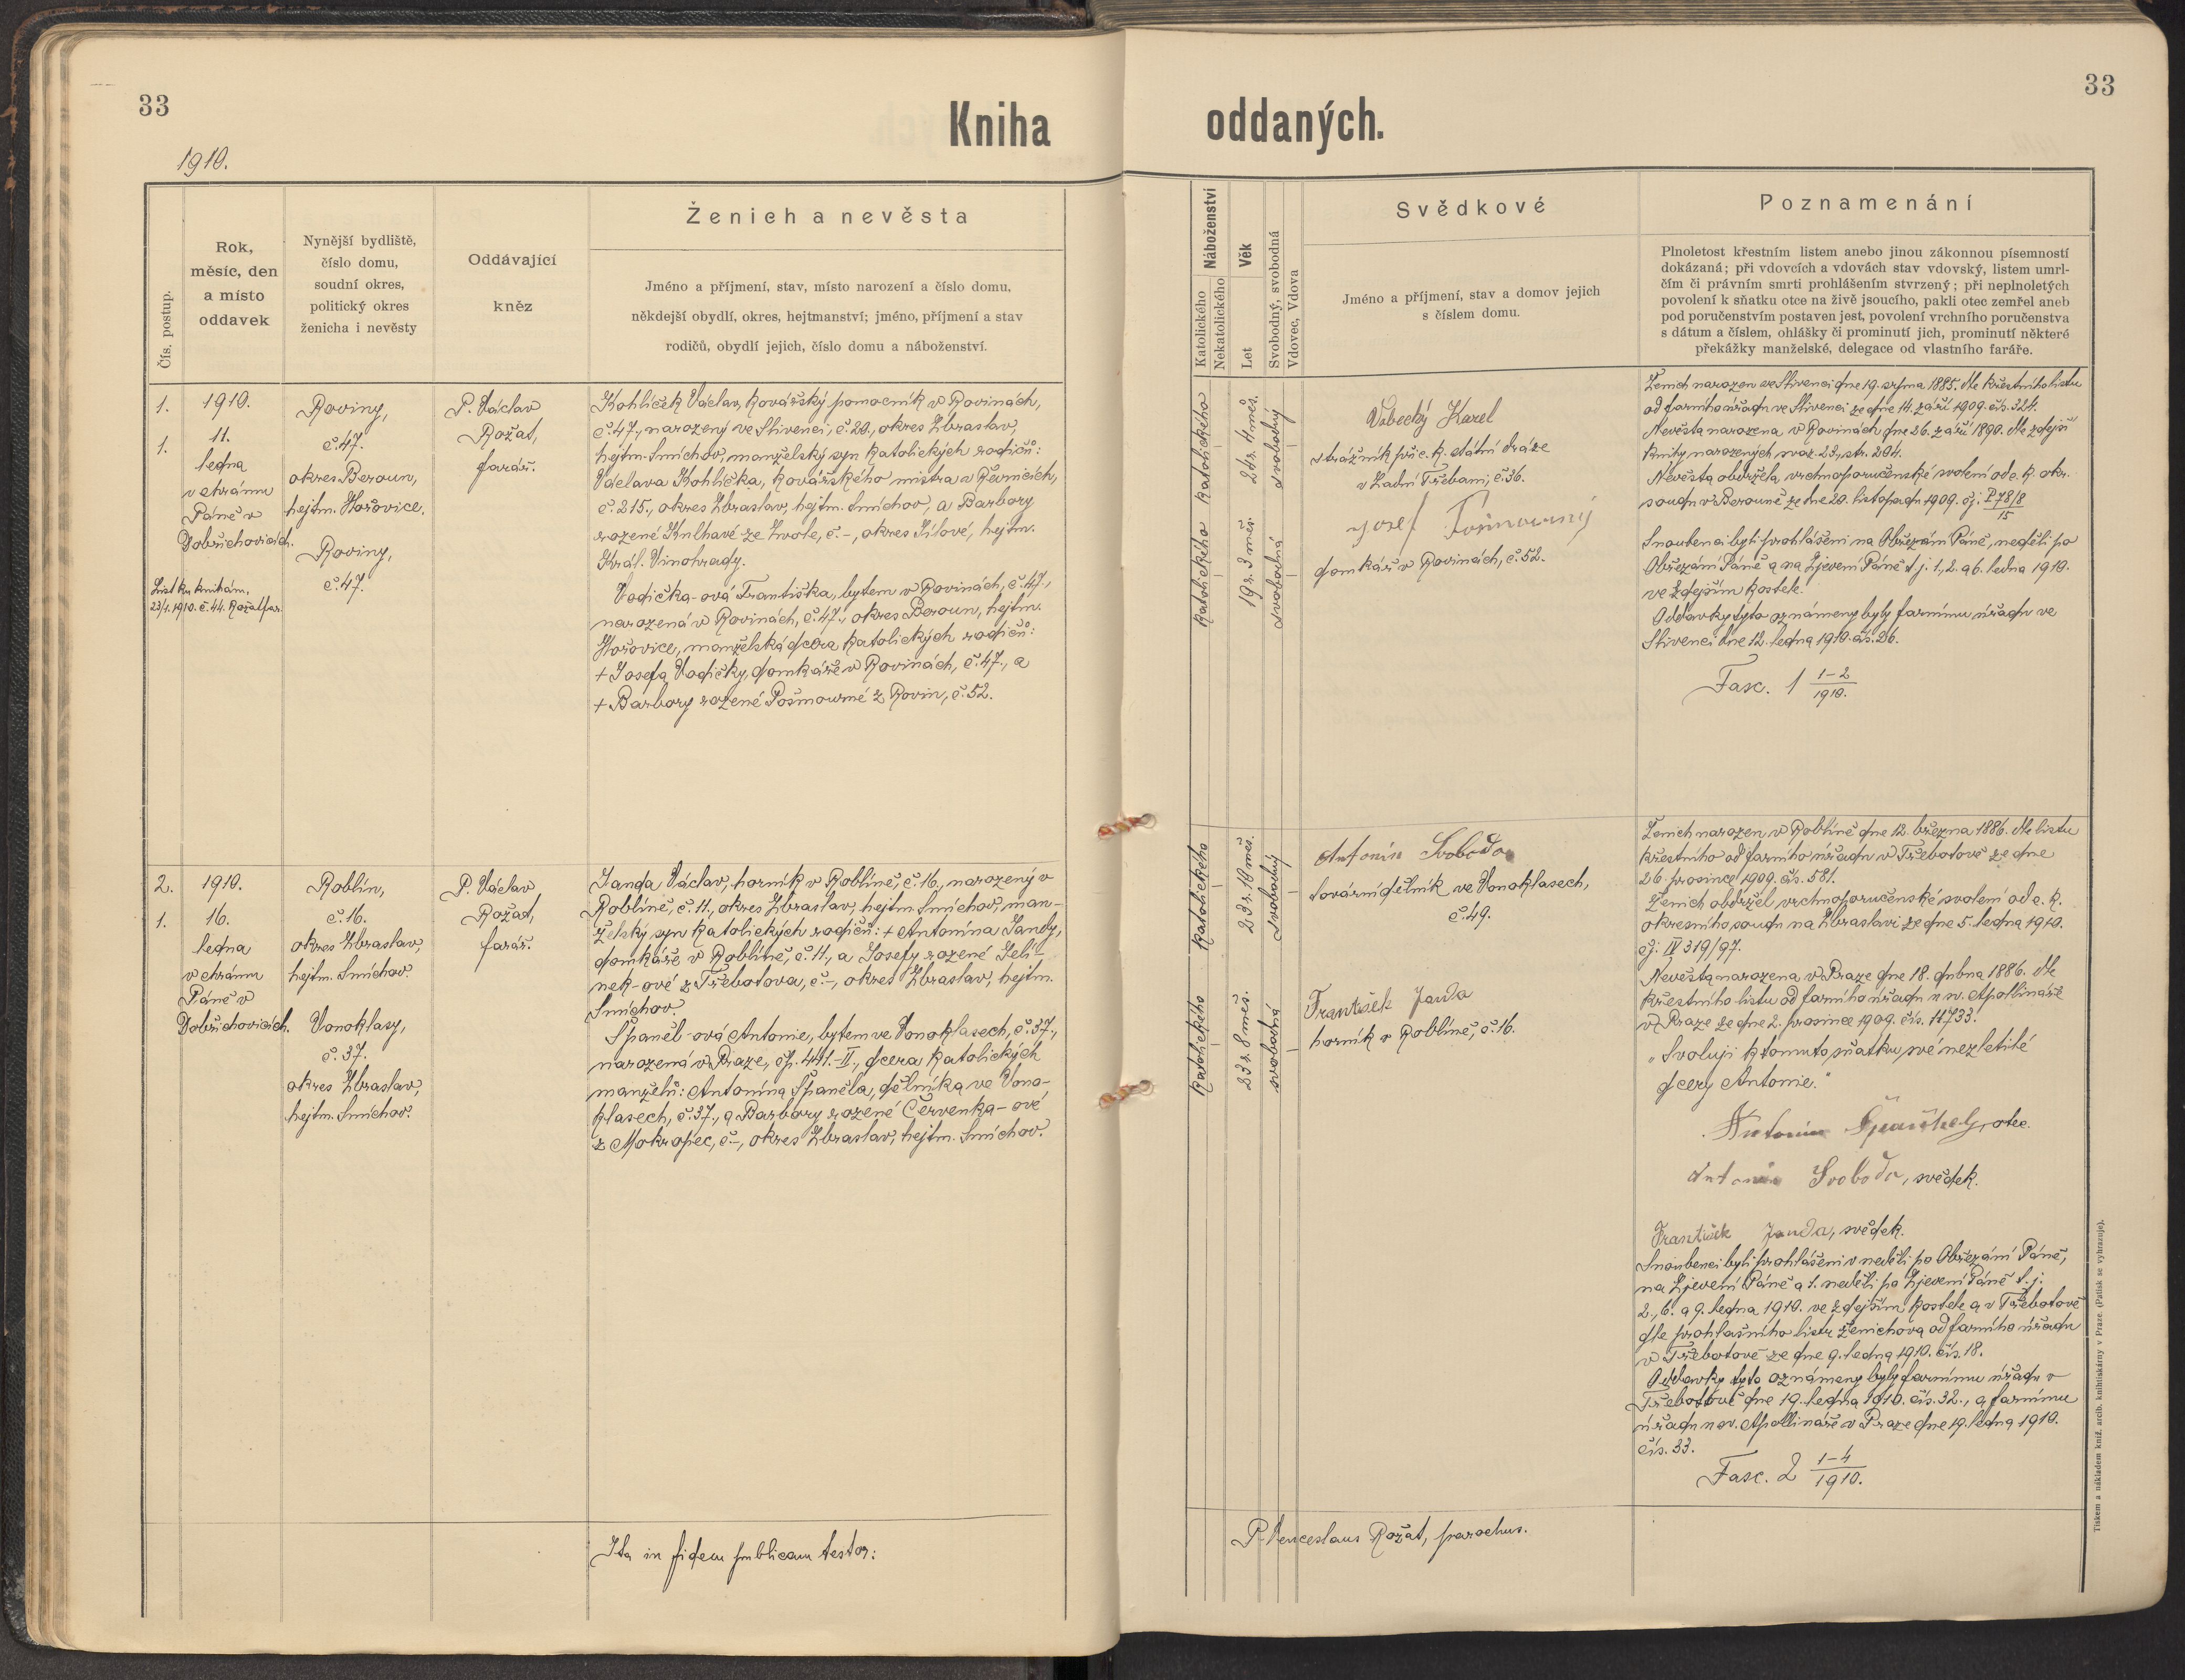 33
Kniha
1910.
Čís. postup.
Rok,
měsíc, den
a místo
oddavek
Nynější bydliště,
číslo domu,
soudní okres,
politický okres
ženicha i nevěsty
Oddávající
kněz
Ženich a nevěsta
Jméno a příjmení, stav, místo narození a číslo domu,
někdejší obydlí, okres, hejtmanství; jméno, příjmení a stav
rodičů, obydlí jejich, číslo domu a náboženství.
1.
1.
1910.
11.
ledna
v chrámu
Páně v
Dobřichovicích.
List ku knihám,
23/1. 1910. č. 44. Rožat far.
Roviny,
č. 47.
okres Beroun,
hejtm. Hořovice.
Roviny,
č. 47.
P. Václav
Rožat,
farář.
Kohlíček Václav, kovářský pomocník v Rovinách,
č. 47., narozený ve Slivenci, č. 20., okres Zbraslav,
hejtm. Smíchov, manželský syn katolických rodičů:
Václava Kohlíčka, kovářského mistra v Řevnicích,
č. 215., okres Zbraslav, hejtm. Smíchov, a Barbory
rozené Kulhavé ze Zvole, č. -, okres Jílové, hejtm.
Král. Vinohrady.
Vodička-ová Františka, bytem v Rovinách, č. 47.,
narozená v Rovinách, č. 47., okres Beroun, hejtm.
Hořovice, manželská dcera katolických rodičů:
+ Josefa Vodičky, domkáře v Rovinách, č. 47., a
+ Barbory rozené Pošmourné z Rovin, č. 52.
2.
1.
1910.
16.
ledna
v chrámu
Páně v
Dobřichovicích.
Roblín,
č. 16.
okres Zbraslav,
hejtm. Smíchov.
Vonoklasy,
č. 37.
okres Zbraslav,
hejtm. Smíchov.
P. Václav
Rožat,
farář.
Janda Václav, horník v Roblíně, č. 16., narozený v
Roblíně, č. 11., okres Zbraslav, hejtm. Smíchov, man-
želský syn katolických rodičů: + Antonína Jandy,
domkáře v Roblíně, č. 11., a Josefy rozené Jelí-
nek-ové z Třebotova, č. -, okres Zbraslav, hejtm.
Smíchov.
Španěl-ová Antonie, bytem ve Vonoklasech, č. 37.,
narozená v Praze, čp. 441.-II., dcera katolických
manželů: Antonína Španěla, dělníka ve Vono-
klasech, č. 37., a Barbory rozené Červenka-ové
z Mokropec, č. -, okres Zbraslav, hejtm. Smíchov.
Ita in fidem publicam testor:
33
oddaných.
Náboženství
Katolického
Nekatolického
Věk
Let
Svobodný, svobodná
Vdovec, Vdova
Svědkové
Jméno a příjmení, stav a domov jejich
s číslem domu.
Poznamenání
Plnoletost křestním listem anebo jinou zákonnou písemností
dokázaná; při vdovcích a vdovách stav vdovský, listem umrl-
čím či právním smrti prohlášením stvrzený; při neplnoletých
povolení k sňatku otce na živě jsoucího, pakli otec zemřel aneb
pod poručenstvím postaven jest, povolení vrchního poručenstva
s dátum a číslem, ohlášky či prominutí jich, prominutí některé
překážky manželské, delegace od vlastního faráře.
Katolického
24 r. 4 měs.
svobodný
Katolického
19 r. 3 měs.
svobodná
Karel
strážník při c. k. státní dráze
v Zadní Třebani, č. 36.
Josef Pošmourný
domkář v Rovinách, č. 52.
Ženich narozen ve Slivenci dne 19. srpna 1885. dle křestního listu
od farního úřadu ve Slivenci ze dne 14. září 1909. čís. 324.
Nevěsta narozena v Rovinách dne 26. září 1890. dle zdejší
knihy narozených svaz. 23., str. 204.
Nevěsta obdržela vrchnoporučenské svolení od c. k. okr.
soudu v Berouně ze dne 20. listopadu 1909. čj. P 78/8
15
Snoubenci byli prohlášeni na Obřezání Páně, neděli po
Obřezání Páně a na Zjevení Páně t. j. 1., 2. a 6. ledna 1910.
ve zdejším kostele.
Oddavky tyto oznámeny byly farnímu úřadu ve
Slivenci dne 12. ledna 1910. čís. 26.
Fasc. 1 1-2
1910.
Katolického
23 r. 10 měs.
svobodný
Katolického
23 r. 8 měs.
svobodná
Antonín Svoboda
tovární dělník ve Vonoklasech,
č. 49.
František Janda
horník v Roblíně, č. 16.
Ženich narozen v Roblíně dne 12. března 1886. dle listu
křestního od farního úřadu v Třebotově ze dne
26. prosince 1909. čís. 581.
Ženich obdržel vrchnoporučenské svolení od c. k.
okresního soudu na Zbraslavi ze dne 5. ledna 1910.
čj. IV 319/97.
Nevěsta narozena v Praze dne 18. dubna 1886. dle
křestního listu od farního úřadu u sv. Apollináře
v Praze ze dne 2. prosince 1909. čís. 11733.
„Svoluji k tomuto sňatku své nezletilé
dcery Antonie."
Antonín, otec.
Antonín Svoboda, svědek.
František Janda, svědek.
Snoubenci byli prohlášeni v neděli po Obřezání Páně,
na Zjevení Páně a 1. neděli po Zjevení Páně t. j.
2., 6. a 9. ledna 1910. ve zdejším kostele a v Třebotově
dle prohlašního listu ženichova od farního úřadu
v Třebotově ze dne 9. ledna 1910. čís. 18.
Oddavky tyto oznámeny byly farnímu úřadu v
Třebotově dne 19. ledna 1910. čís. 32., a farnímu
úřadu u sv. Apollináře v Praze dne 19. ledna 1910.
čís. 33.
Fasc. 2 1-4
1910.
P. Venceslaus Rožat, parochus.
Tiskem a nákladem kníž. arcib. knihtiskárny v Praze. (Patisk se vyhrazuje).